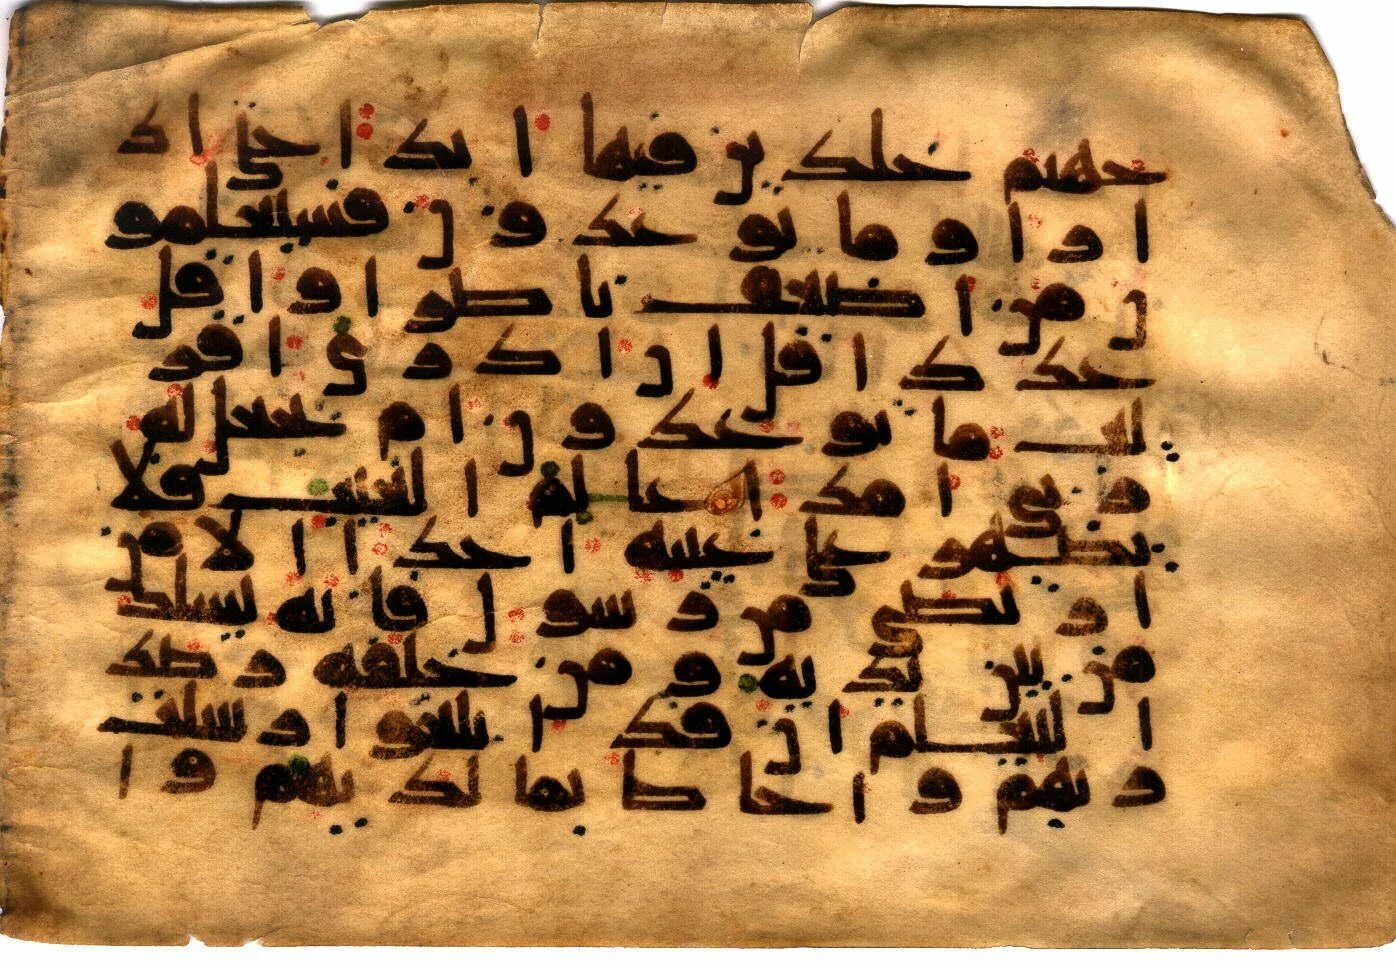 جهنم خلدين فيها ابدا حتى اذ
ا راو ما يوعدون فسيعلمو
ن من اضعف ناصرا واقل
عددا قل ان ادري اقر
يب ما توعدون ام يجعل له
ربي امدا عالم الغيب فلا
يظهر على غيبه احدا الا من
ارتضى من رسول فانه يسلك
من بين يديه ومن خلفه رصد
ا ليعلم ان قد ابلغوا رسلت
ربهم واحاط بما لديهم وا